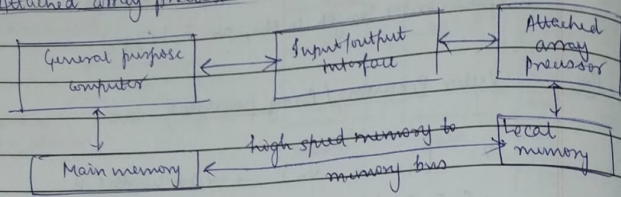 Attached array
General purpose
computer
Input/output
Interface
Attached
array
Processor
Main memory
high speed memory to
memory bus
Local
memory